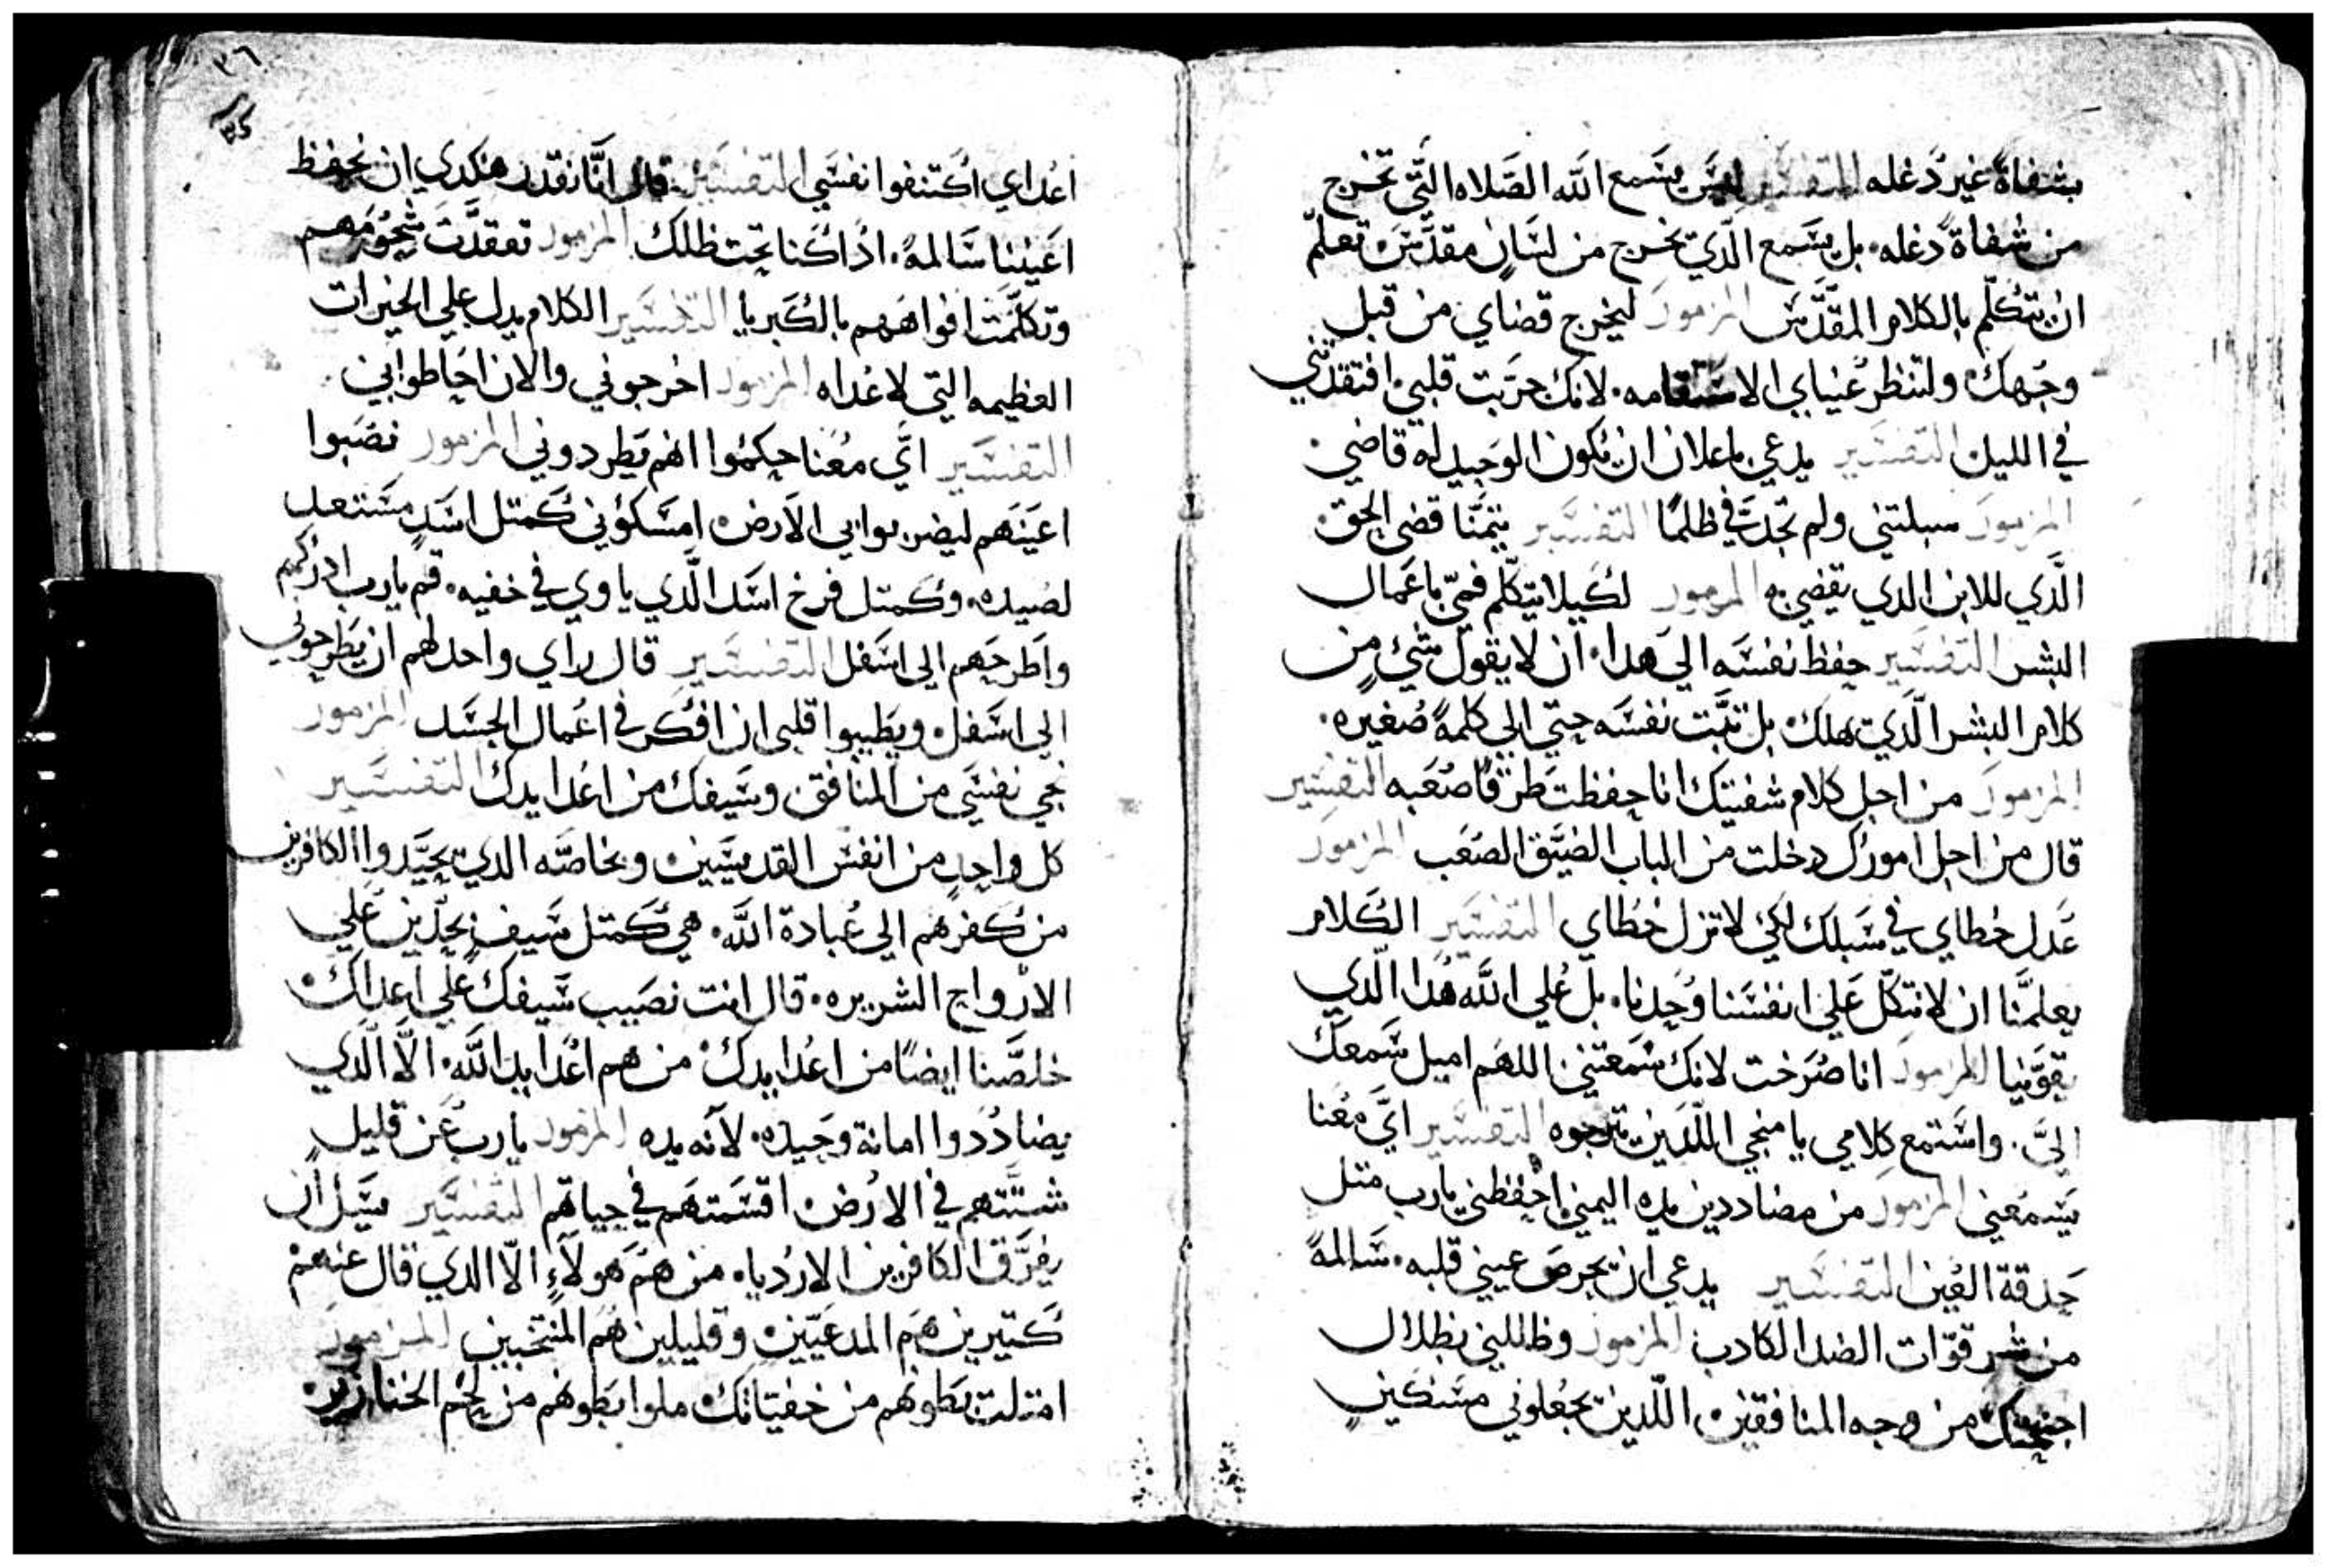 بشفاة غير دغله التفسير ليس يسمع الله الصلاه التي تخرج
من شفاة دغله. بل يسمع الدي تخرج من لسان مقدس تعلم
ان يتكلم بالكلام المقدس المزمور ليخرج قضاي من قبل
وجهك ولتنظر عيناي الاستقامه. لانك جربت قلبي افتقدتني
في الليل التفسير يدعي باعلان ان يكون الوحيد له قاضي.
المزمور سبلتني ولم تجدت في ظلمًا التفسير يتمنا قضي الحق
الدي للابن الدي يقضي به المزمور لكيلا يتكلم فمي باعمال
البشر التفسير حفظ نفسه الي هدا. ان لا يقول شئ من
كلام البشر الدي تهلك بل تبت نفسه حتي الي كلمة صغيره.
المزمور من اجل كلام شفتيك انا حفظت طرقًا صعبه التفسير
قال من اجل امورك دخلت من الباب الضيق الصعب المزمور
عدل خطاي في سبلك لكي لا تزل خطاي التفسير الكلام
يعلمنا ان لا نتكل علي انفسنا وحدنا. بل علي الله هدا الدي
يقوينا المزمور انا صرخت لانك سمعتني اللهم اميل سمعك
الي. واستمع كلامي يا منجي اللدين ترجوه التفسير اي معنا
يسمعني المزمور من مضاددين يده اليمني احفظني يارب متل
حدقة العين التفسير يدعي ان يحرص عيني قلبه. سالمة
من شر قوات الضد الكادب المزمور وظللني بظلال
اجنحتك من وجه المنافقين اللدين يجعلوني مسكين
٣٦
اعداي اكتنفوا نفسي التفسير قال انا نقدر هكدي ان نحفظ
اعيننا سالمة. اذا كنا تحت ظلك المزمور تعقدت شحومهم
وتكلمت افواههم بالكبريا التفسير الكلام يدل علي الخيرات
العظيمه التي لاعداه المزمور اخرجوني والان احاطوا بي
التفسير اي معنا حكموا انهم يطردوني المزمور نصبوا
اعينهم ليضربوا بي الارض امسكوني كمتل اسد مستعد
لصيده. وكمتل فرخ اسد الدي ياوي في خفيه. قم يارب ادركهم
واطرحهم الي اسفل التفسير قال راي واحد لهم ان يطرحوني
الي اسفل ويطيبوا قلبي ان افكر في اعمال الجسد المزمور
نجي نفسي من المنافق وسيفك من اعدا يدك التفسير
كل واحد من انفس القديسين وبخاصه الدي يحيدوا الكافرين
من كفرهم الي عبادة الله. هي كمتل سيف بحدين علي
الارواح الشريره. قال انت نصيب سيفك علي اعداك
خلصنا ايضًا من اعدا يدك من هم اعدا يد الله. الا الدي
يضاددوا امانة وحيده. لانه يده المزمور يارب عن قليل
شتتهم في الارض اقسمتهم في حياتهم التفسير يسيل ان
يفرق الكافرين الاردياء. من هم هولاء الا الدي قال عنهم
كتيرين هم المدعيين وقليلين هم المنتخبين المزمور
امتلت بطونهم من خفياتك ملوا بطونهم من لحم الخنازير